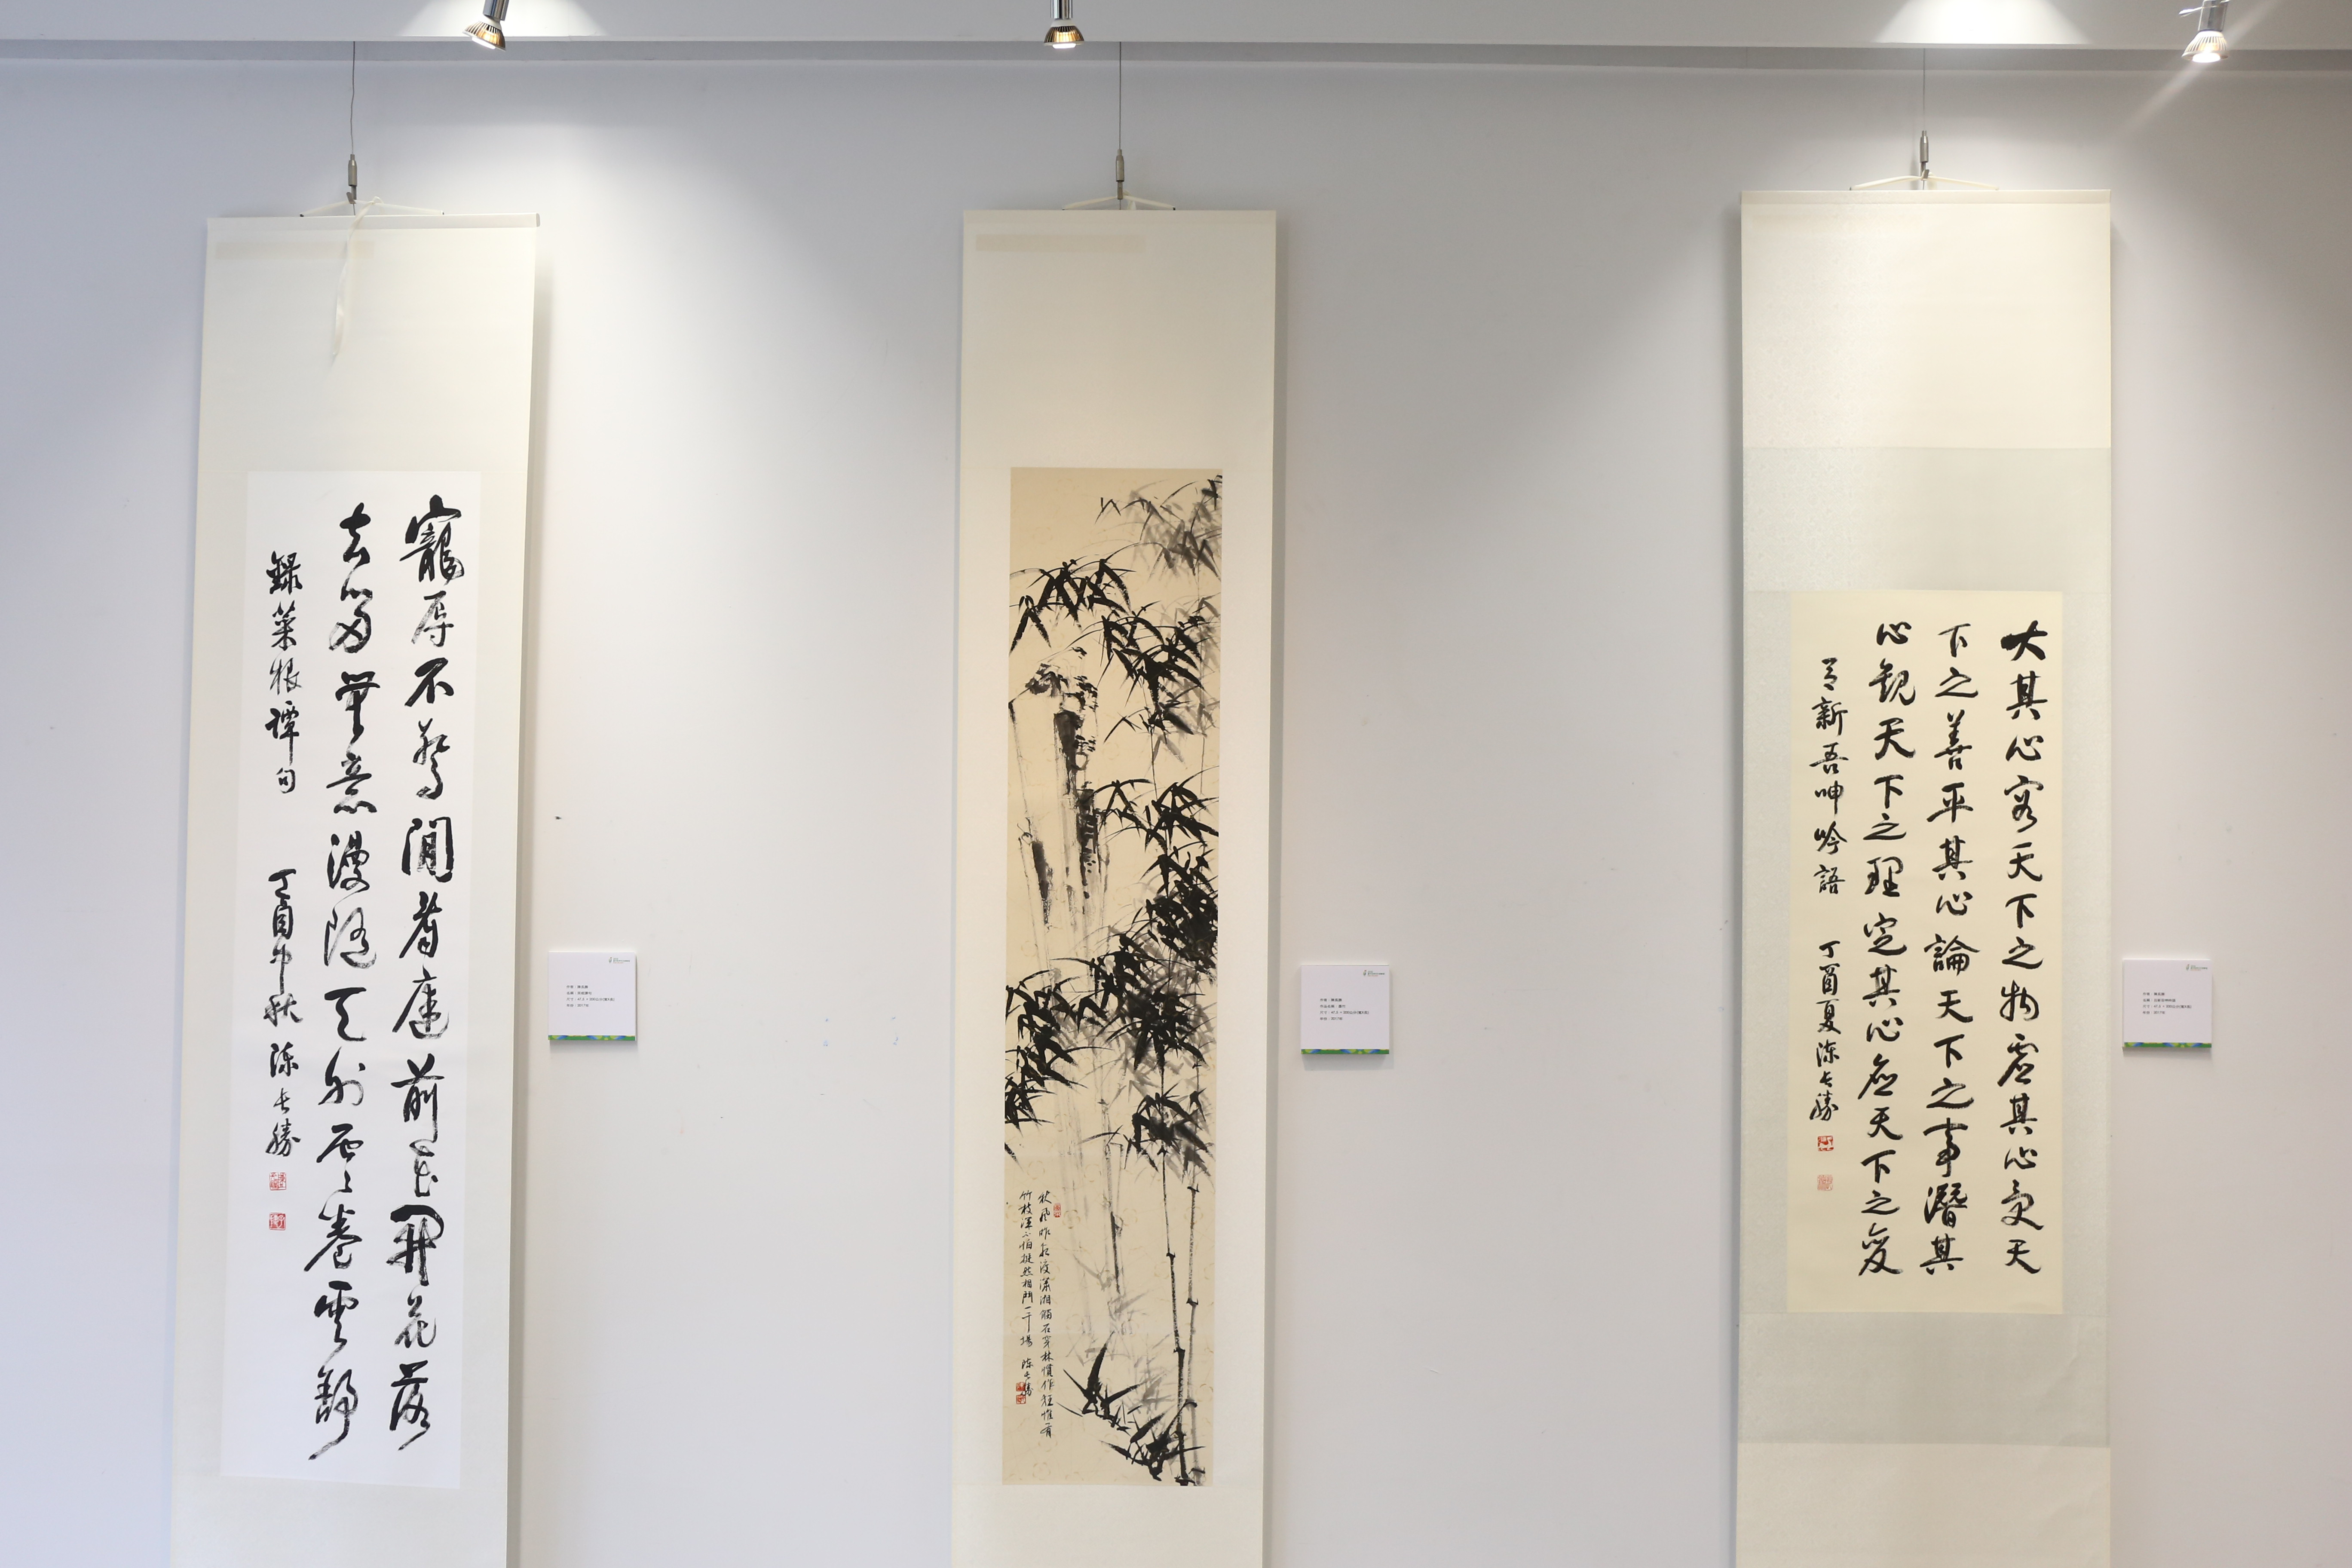 寵辱不驚閒看庭前花開花落
去留無意漫隨天外雲卷雲舒
錄菜根譚句 丁酉中秋 陳長勝
秋風昨夜渡瀟湘觸石穿林慣作狂惟有
竹枝渾不怕挺然相鬥一千場 陳長勝
大其心容天下之物虛其心受天
下之善平其心論天下之事潛其
心觀天下之理定其心應天下之變
呂新吾呻吟語 丁酉夏陳長勝